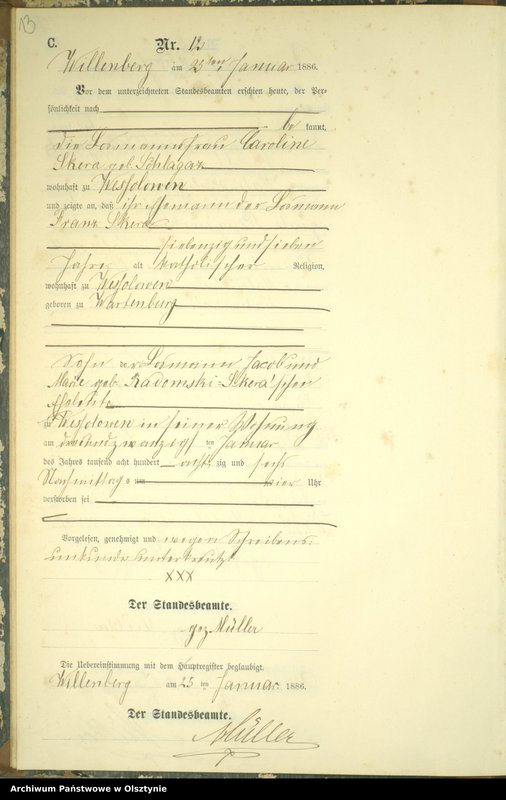 13
C.
Nr. 12
Willenberg am 25ten Januar 1886.
Vor dem unterzeichneten Standesbeamten erschien heute, der Per-
sönlichkeit nach
be kannt,
die Losmannsfrau Caroline
Skera geb. Schlagaz
wohnhaft zu Wessolowen
und zeigte an, daß ihr Ehemann der Losmann
Franz Skera
siebenzig und sieben
Jahre alt katholischer Religion,
wohnhaft zu Wessolowen
geboren zu Wartenburg
Sohn der Losmann Jacob und
Marie geb. Radomski-Skera'schen
Eheleute
zu Wessolowen in seiner Wohnung
am dreiundzwanzigsten Januar
des Jahres tausend acht hundert achtzig und sechs
Nachmittags um vier Uhr
verstorben sei
Vorgelesen, genehmigt und wegen Schreibens-
unkunde unterkreuzt
XXX
Der Standesbeamte.
gez. Müller
Die Uebereinstimmung mit dem Hauptregister beglaubigt.
Willenberg am 25ten Januar 1886.
Der Standesbeamte.
Müller
Archiwum Państwowe w Olsztynie